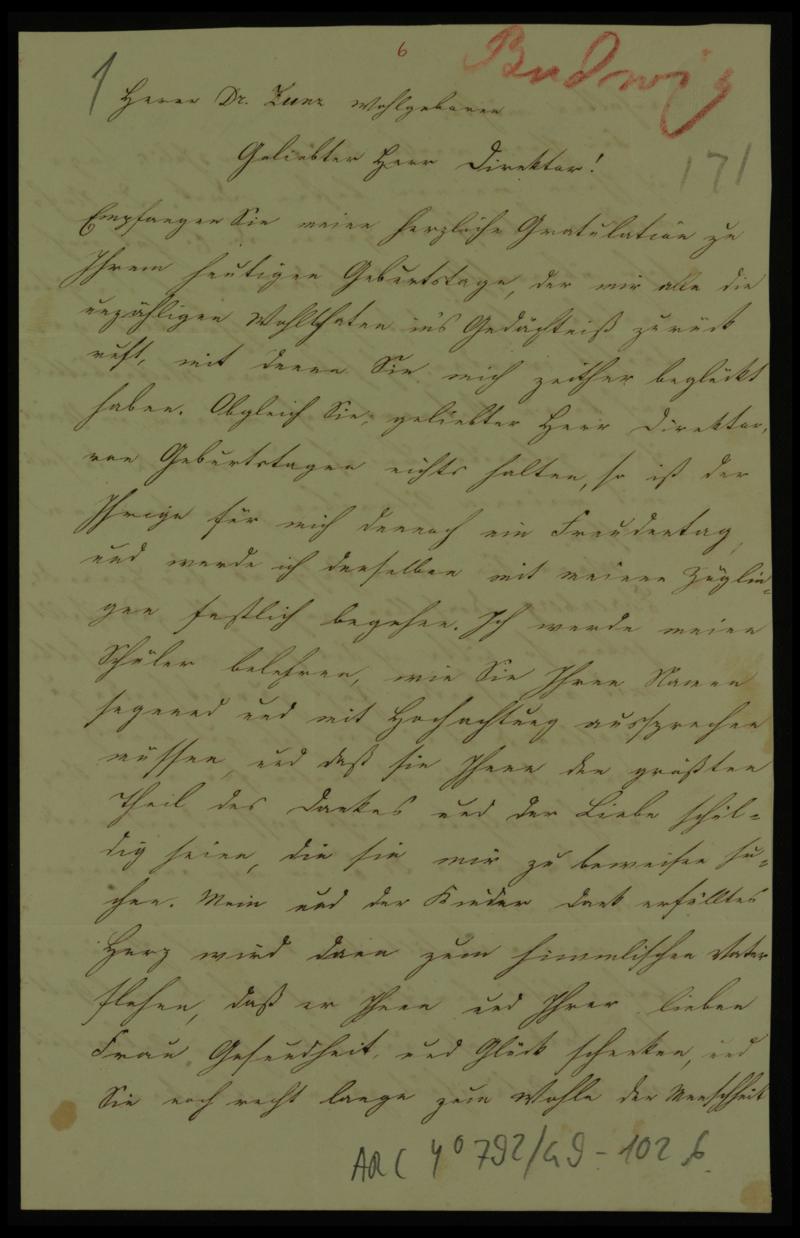 6
Budwig
1
Herrn Dr. Zunz Wohlgeboren
171
Geliebter Herr Direktor!
Empfangen Sie meine herzliche Gratulation zu
Ihrem heutigen Geburtstage, der mir alle die
unzähligen Wohlthaten in's Gedächtniß zurück
ruft, mit denen Sie mich zeither beglückt
haben. Obgleich Sie, geliebter Herr Direktor,
von Geburtstagen nichts halten, so ist der
Ihrige für mich dennoch ein Freudentag,
und werde ich denselben mit meinen Zöglin-
gen festlich begehen. Ich werde meine
Schüler belehren, wie Sie Ihren Namen
segnend und mit Hochachtung aussprechen
müssen, und daß sie Ihnen den größten
Theil des Dankes und der Liebe schul-
dig seien, die sie mir zu beweisen su-
chen. Mein und der Kinder Dank erfülltes
Herz wird dann zum himmlischen Vater
flehen, daß er Ihnen und Ihrer lieben
Frau Gesundheit und Glück schenken, und
Sie noch recht lange zum Wohle der Menschheit
ARC 4° 792/G9-102 6.